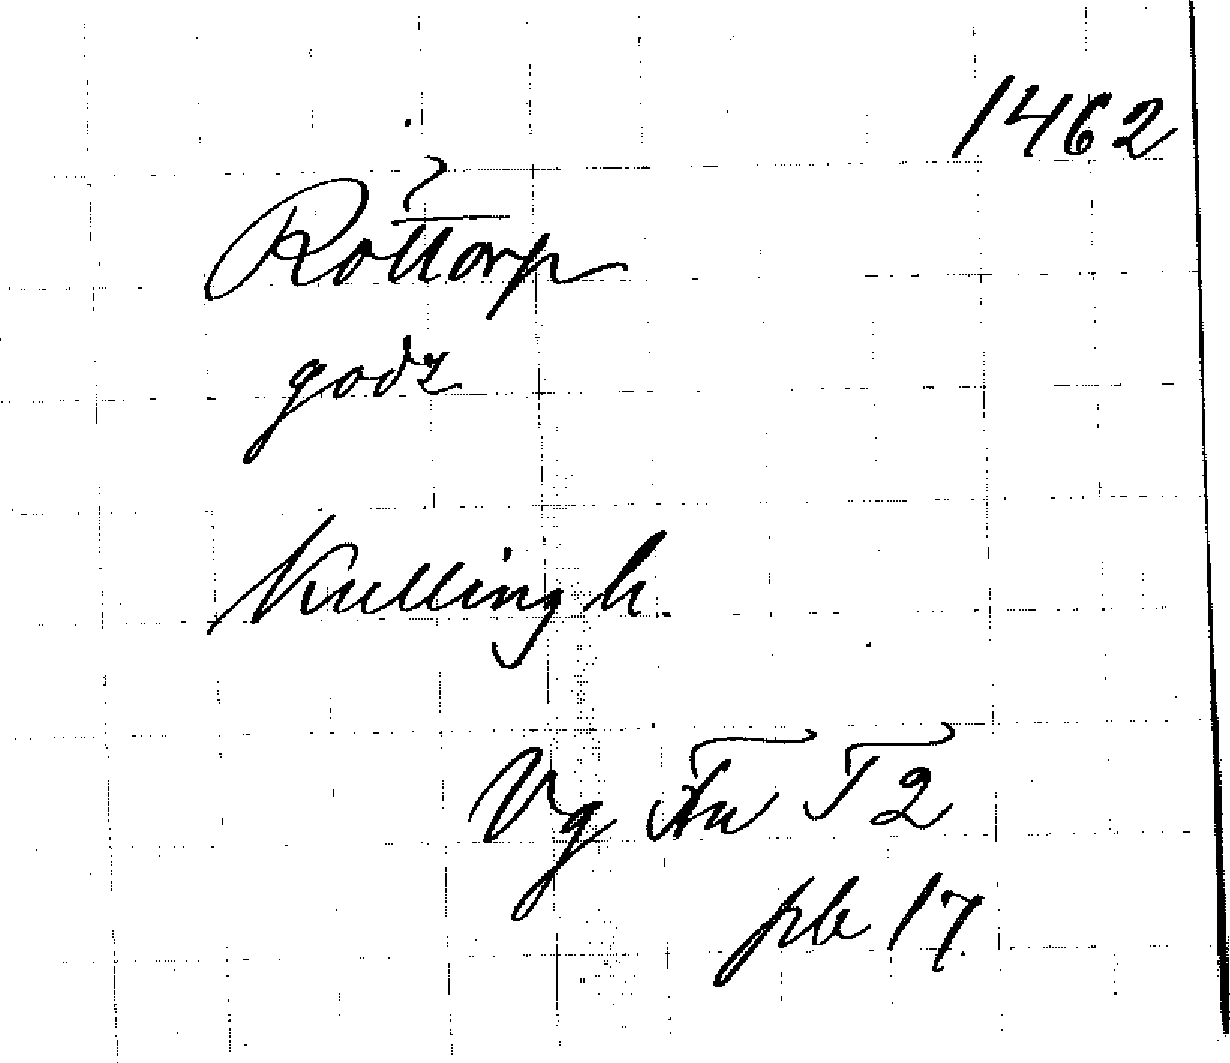 1462
?
Rottorp
godz
Kulling h.
Vg Fru T 2
pb 17